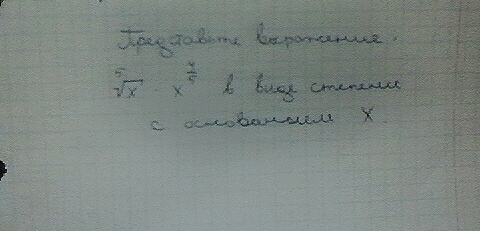 Представьте выражение.
⁵√x · x^(4/5) в виде степени
с основанием x.